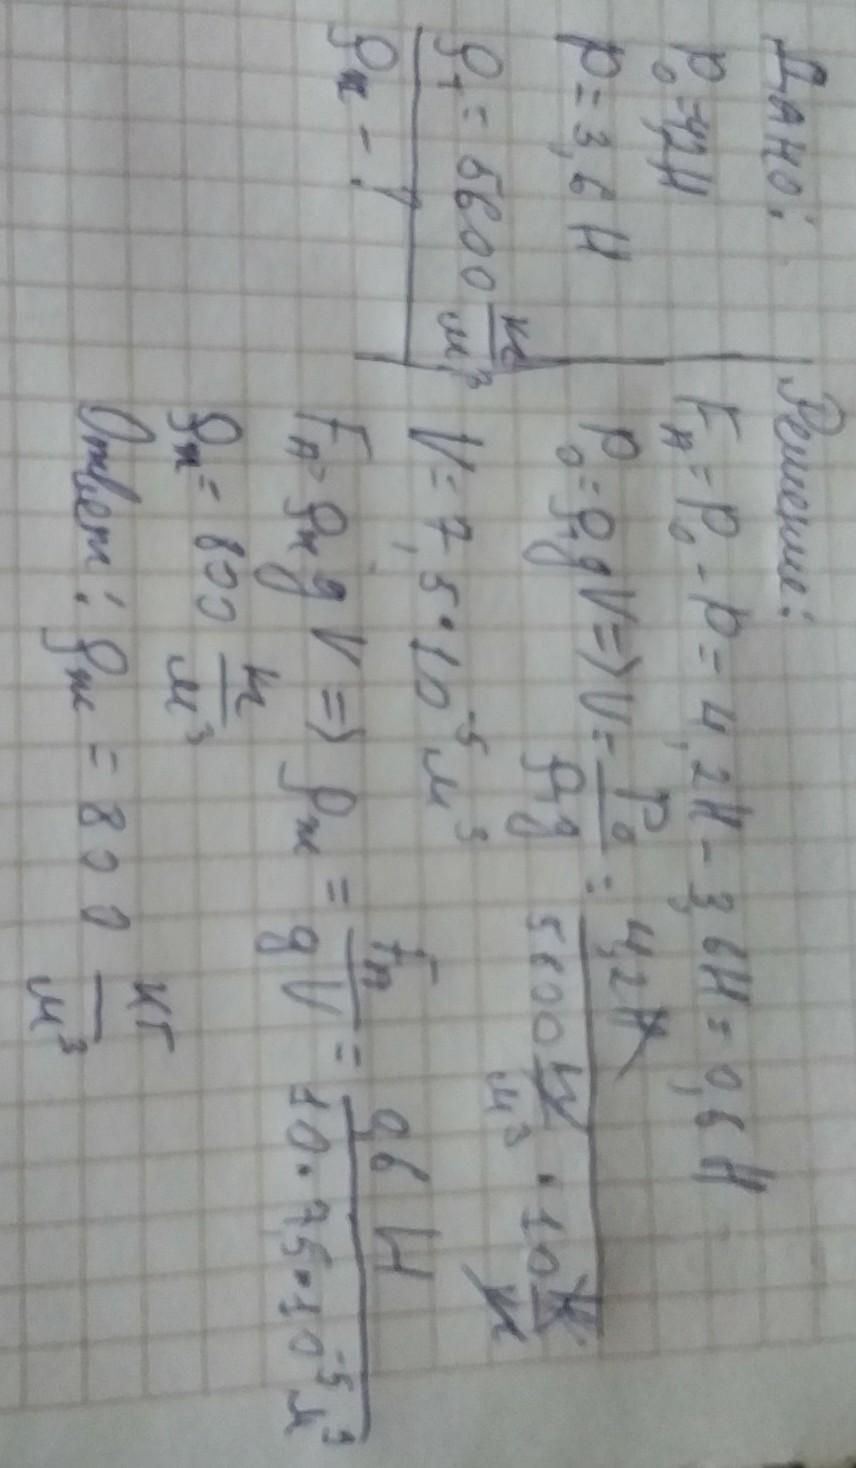 Дано:
P₀=4,2Н
P=3,6Н
ρ₁=5600 кг/м³
ρж-?
Решение:
FA=P₀-P=4,2Н-3,6Н=0,6Н
P₀=ρ₁gV=>V=P₀/ρ₁g=4,2Н/5600 кг/м³·10 Н/кг
V=7,5·10⁻⁵м³
FA=ρжgV=>ρж=FA/gV=0,6Н/10·7,5·10⁻⁵м³
ρж=800 кг/м³
Ответ: ρж=800 кг/м³